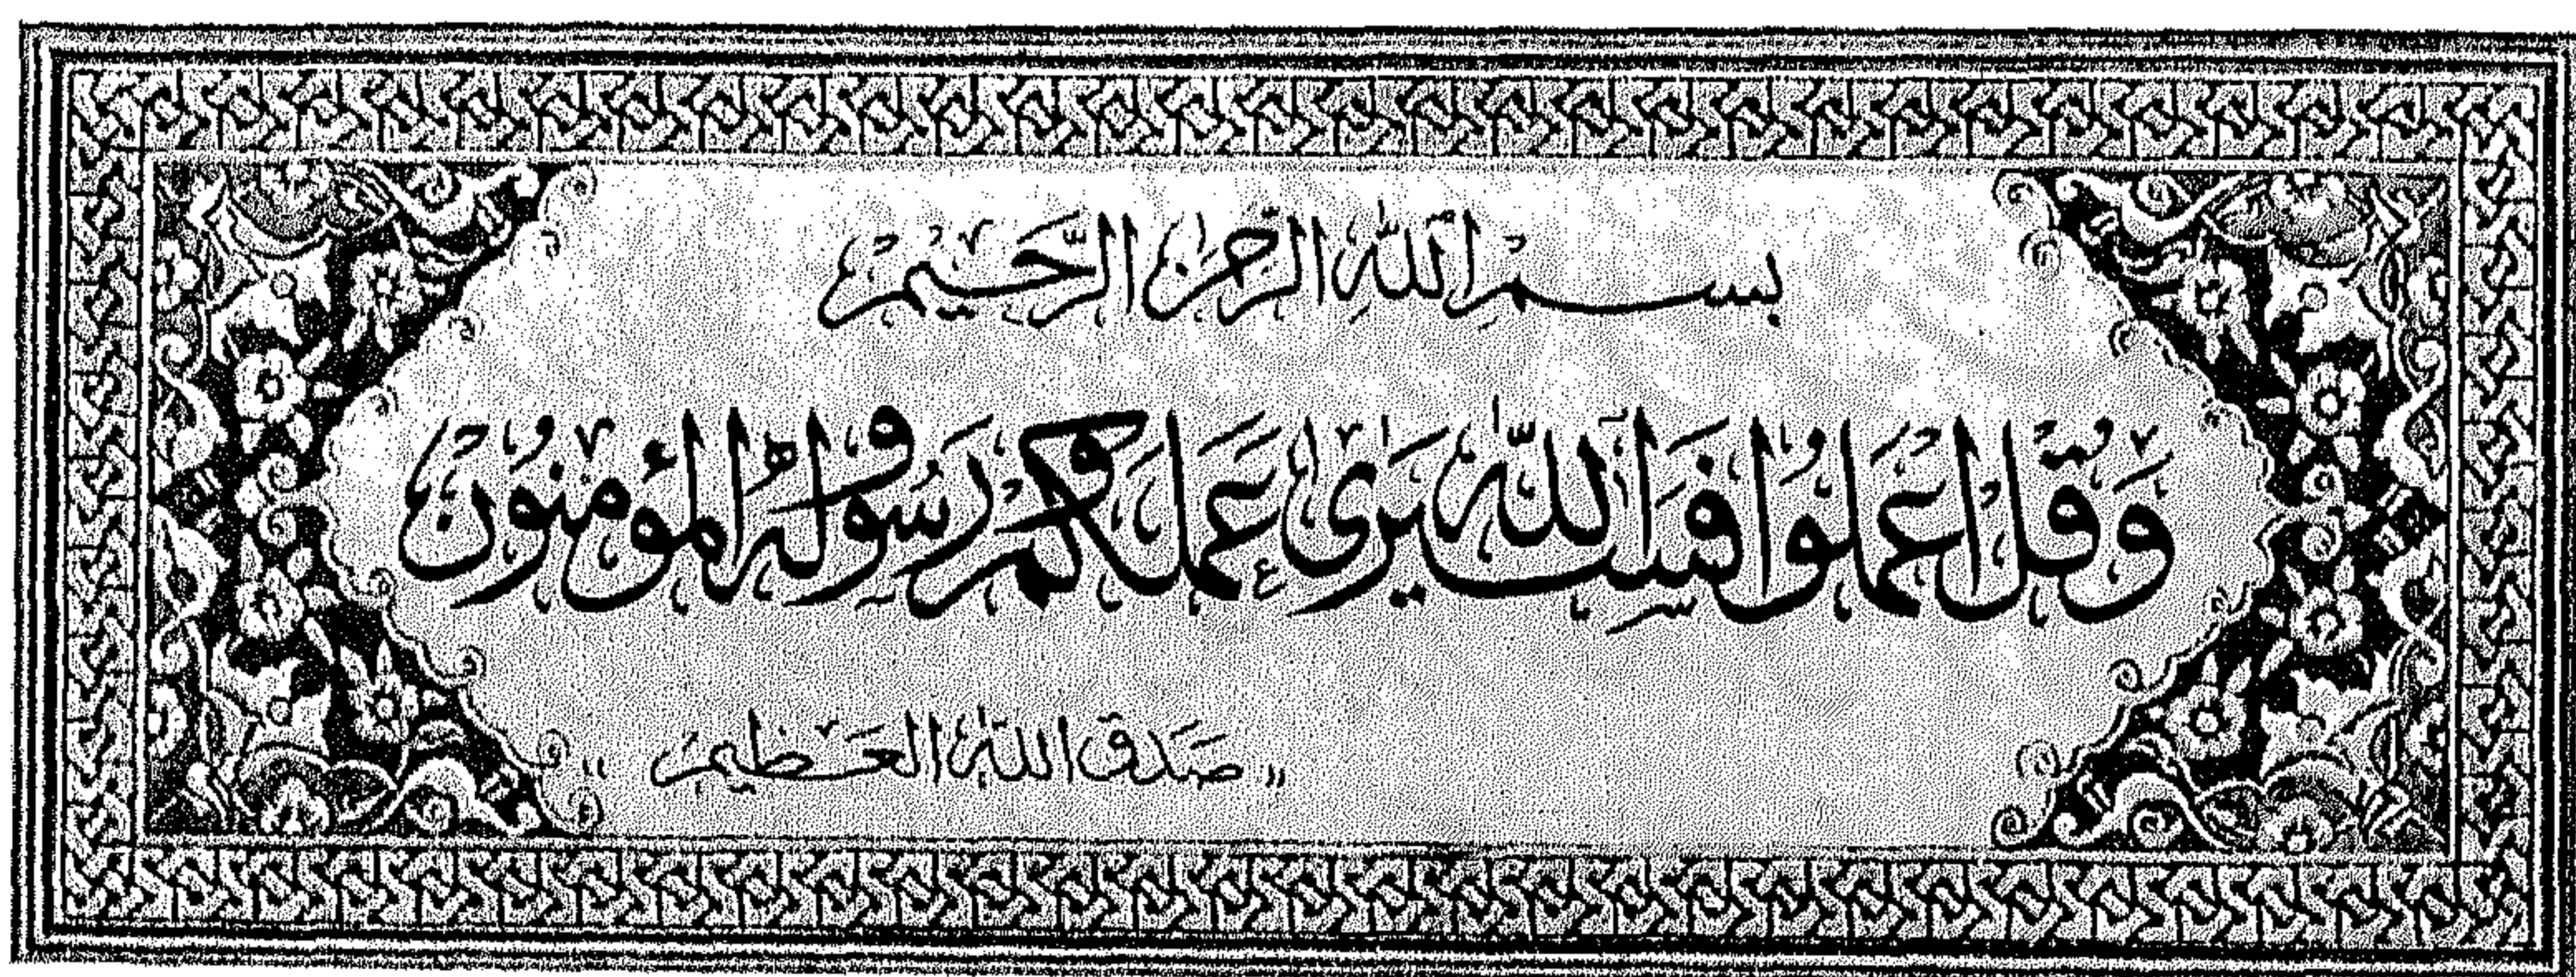 بِسْمِ اللَّهِ الرَّحْمَنِ الرَّحِيمِ
وَقُلِ اعْمَلُوا فَسَيَرَى اللَّهُ عَمَلَكُمْ وَرَسُولُهُ وَالْمُؤْمِنُونَ
"صَدَقَ اللَّهُ الْعَظِيمُ"